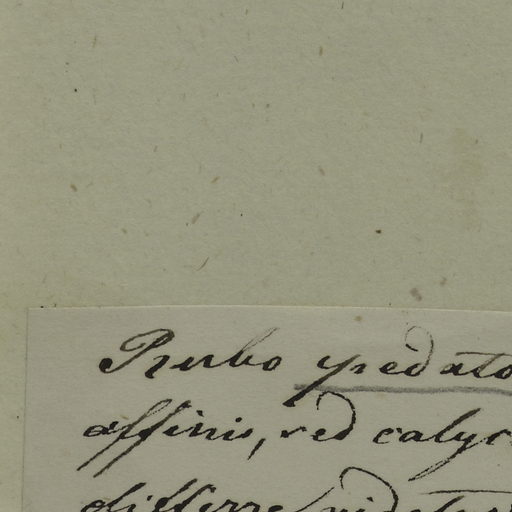 Rubo pedato
affinis, sed calyc
differre videtur